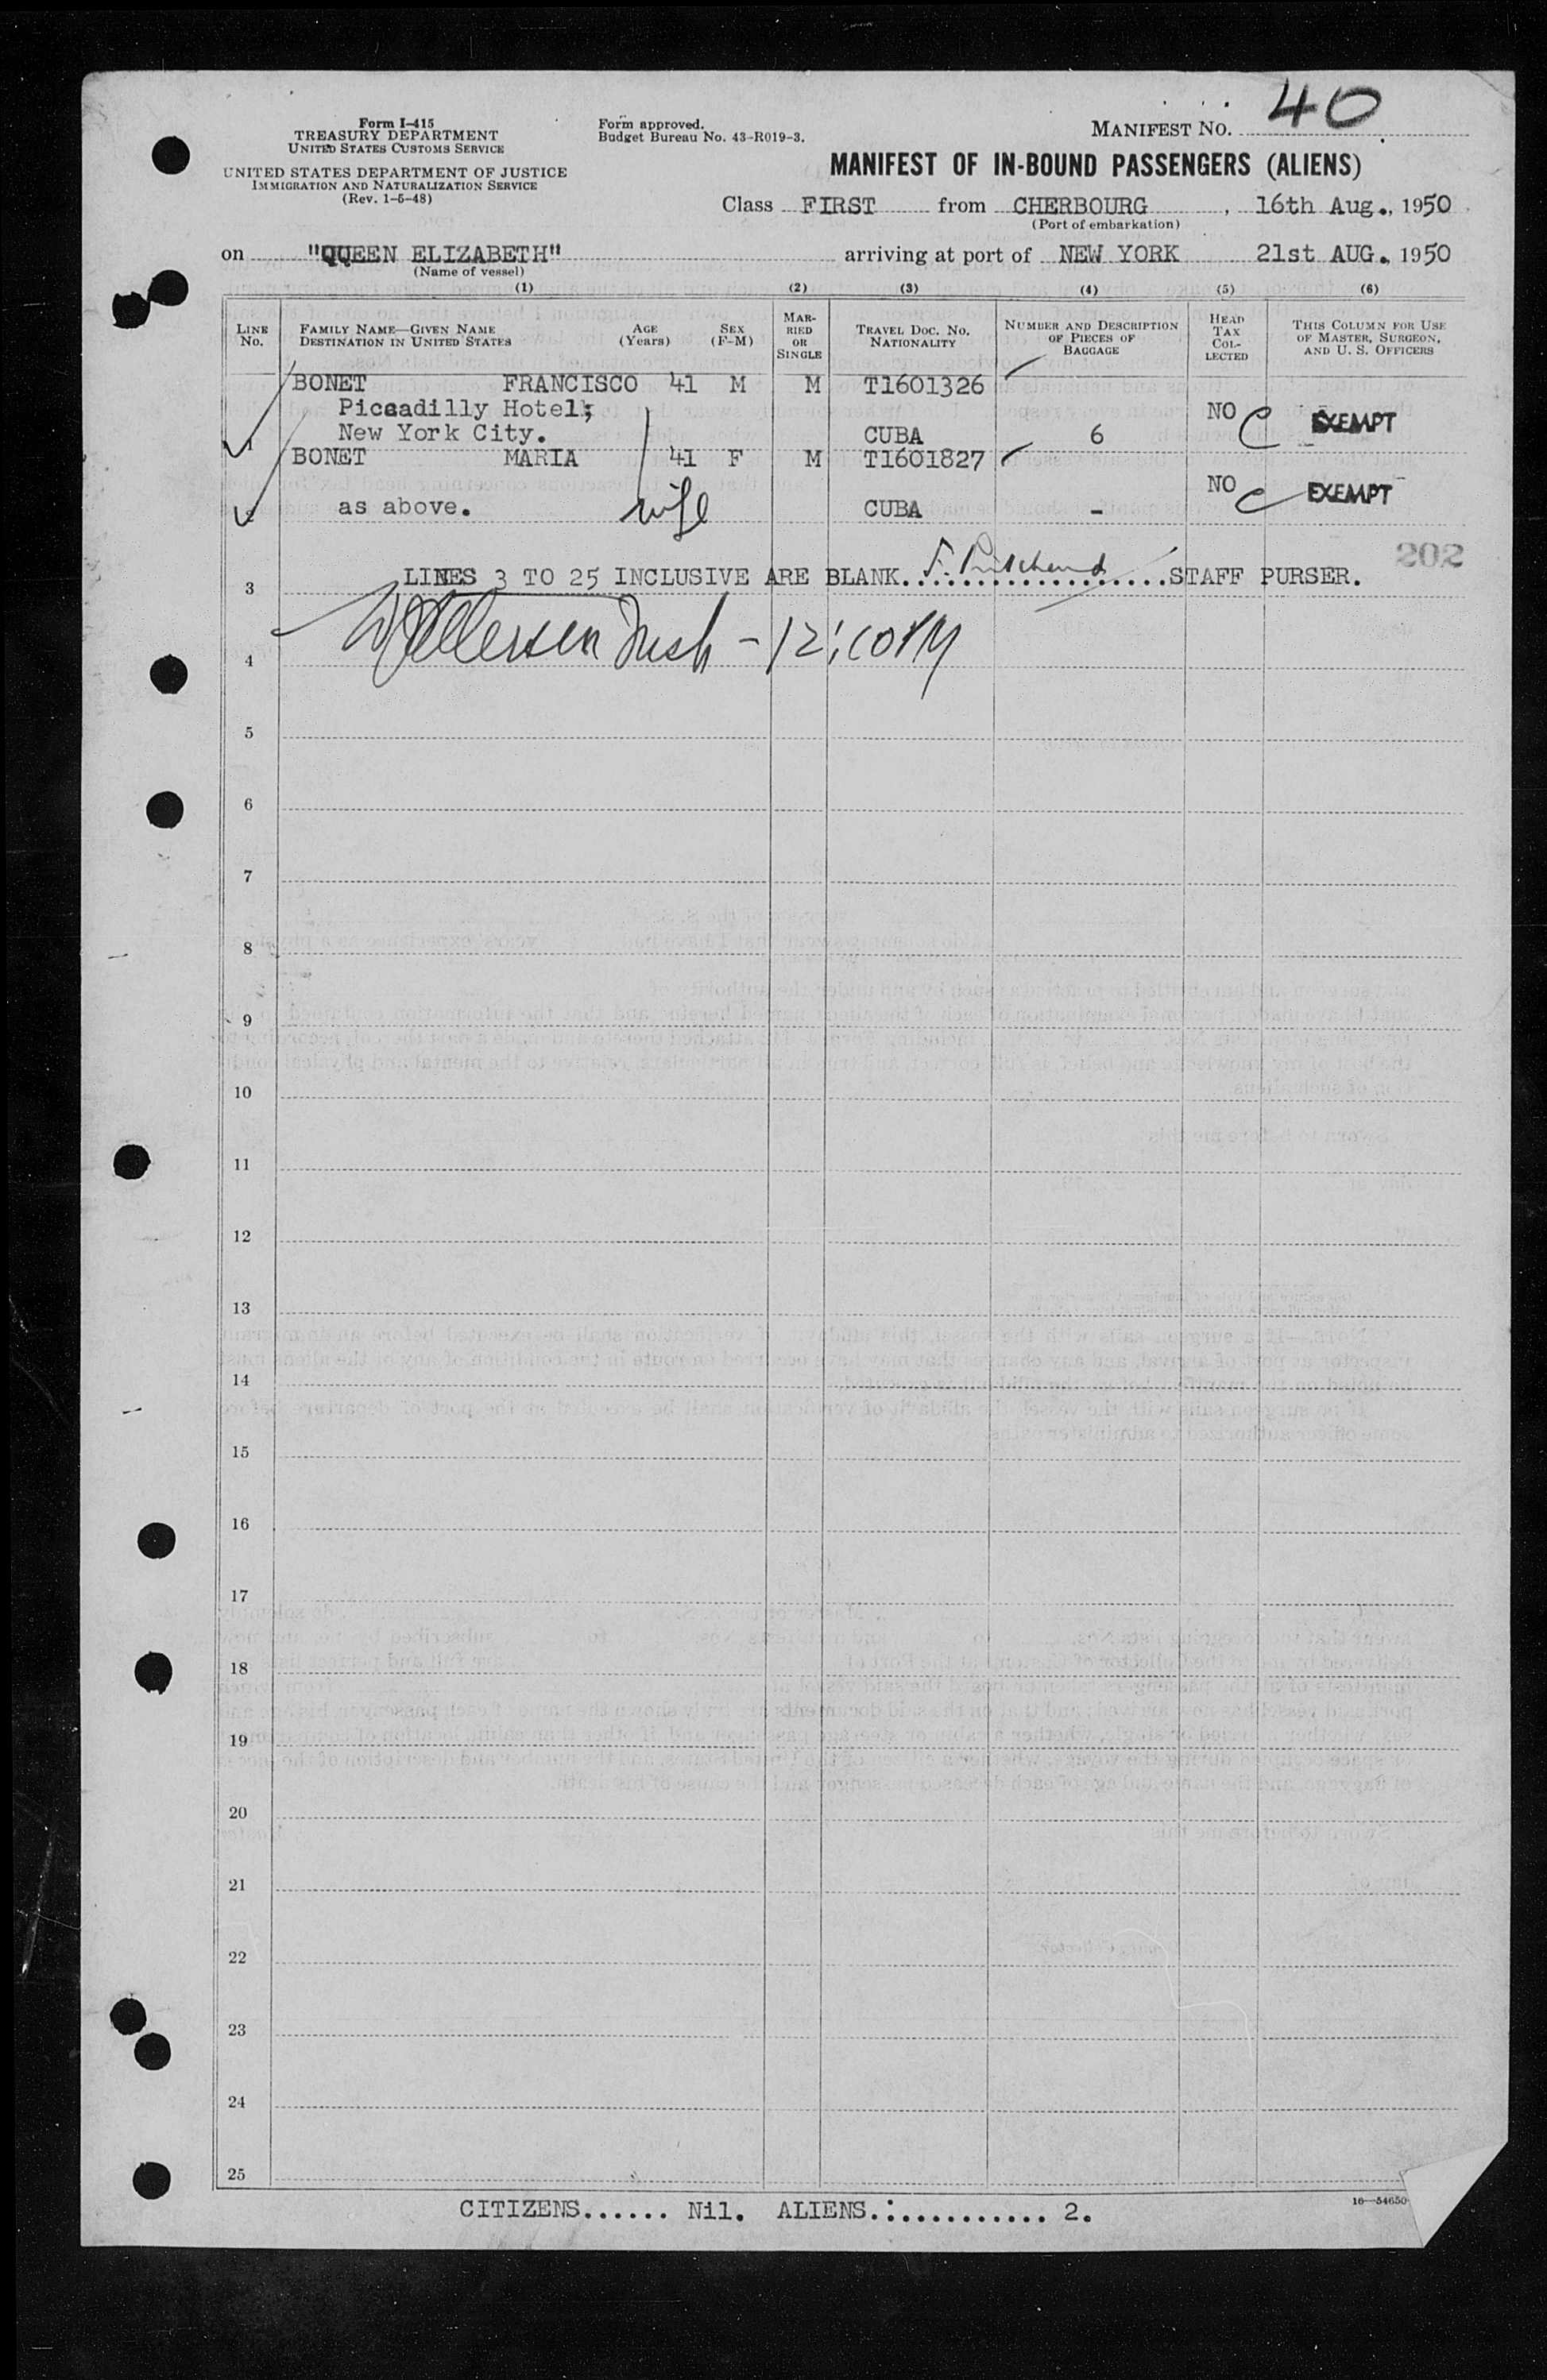 40
Form I-415
TREASURY DEPARTMENT
UNITED STATES CUSTOMS SERVICE
UNITED STATES DEPARTMENT OF JUSTICE
IMMIGRATION AND NATURALIZATION SERVICE
(Rev. 1-5-48)
Form approved.
Budget Bureau No. 43-R019-3.
MANIFEST NO.
MANIFEST OF IN-BOUND PASSENGERS (ALIENS)
Class FIRST from CHERBOURG, 16th Aug., 1950
(Port of embarkation)
on "QUEEN ELIZABETH" arriving at port of NEW YORK 21st AUG., 1950
(Name of vessel)
(1) (2) (3) (4) (5) (6)
LINE No. FAMILY NAME—GIVEN NAME DESTINATION IN UNITED STATES AGE (Years) SEX (F-M) MARRIED OR SINGLE TRAVEL DOC. No. NATIONALITY NUMBER AND DESCRIPTION OF PIECES OF BAGGAGE HEAD TAX COLLECTED THIS COLUMN FOR USE OF MASTER, SURGEON, AND U. S. OFFICERS
BONET FRANCISCO 41 M M T1601326
Piccadilly Hotel; NO C EXEMPT
1 New York City. CUBA 6
BONET MARIA 41 F M T1601827
NO C EXEMPT
2 as above. wife CUBA -
202
3 LINES 3 TO 25 INCLUSIVE ARE BLANK. F. Pritchard STAFF PURSER.
4
5
6
7
8
9
10
11
12
13
14
15
16
17
18
19
20
21
22
23
24
25
CITIZENS...... Nil. ALIENS.:........... 2.
16—54650